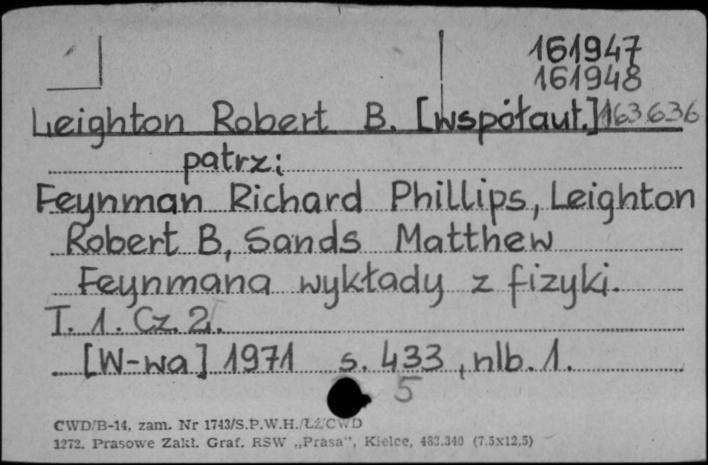 161947
161948
Leighton Robert B. [współaut.] 163636
patrz:
Feynman Richard Phillips, Leighton
Robert B, Sands Matthew
Feynmana wykłady z fizyki.
T. 1. Cz. 2.
[W-wa] 1971 s. 433, nlb. 1.
5
CWD/B-14, zam. Nr 1743/S.P.W.H./ŁŻ/CWD
1272. Prasowe Zakł. Graf. RSW „Prasa”, Kielce, 483.340 (7,5x12,5)